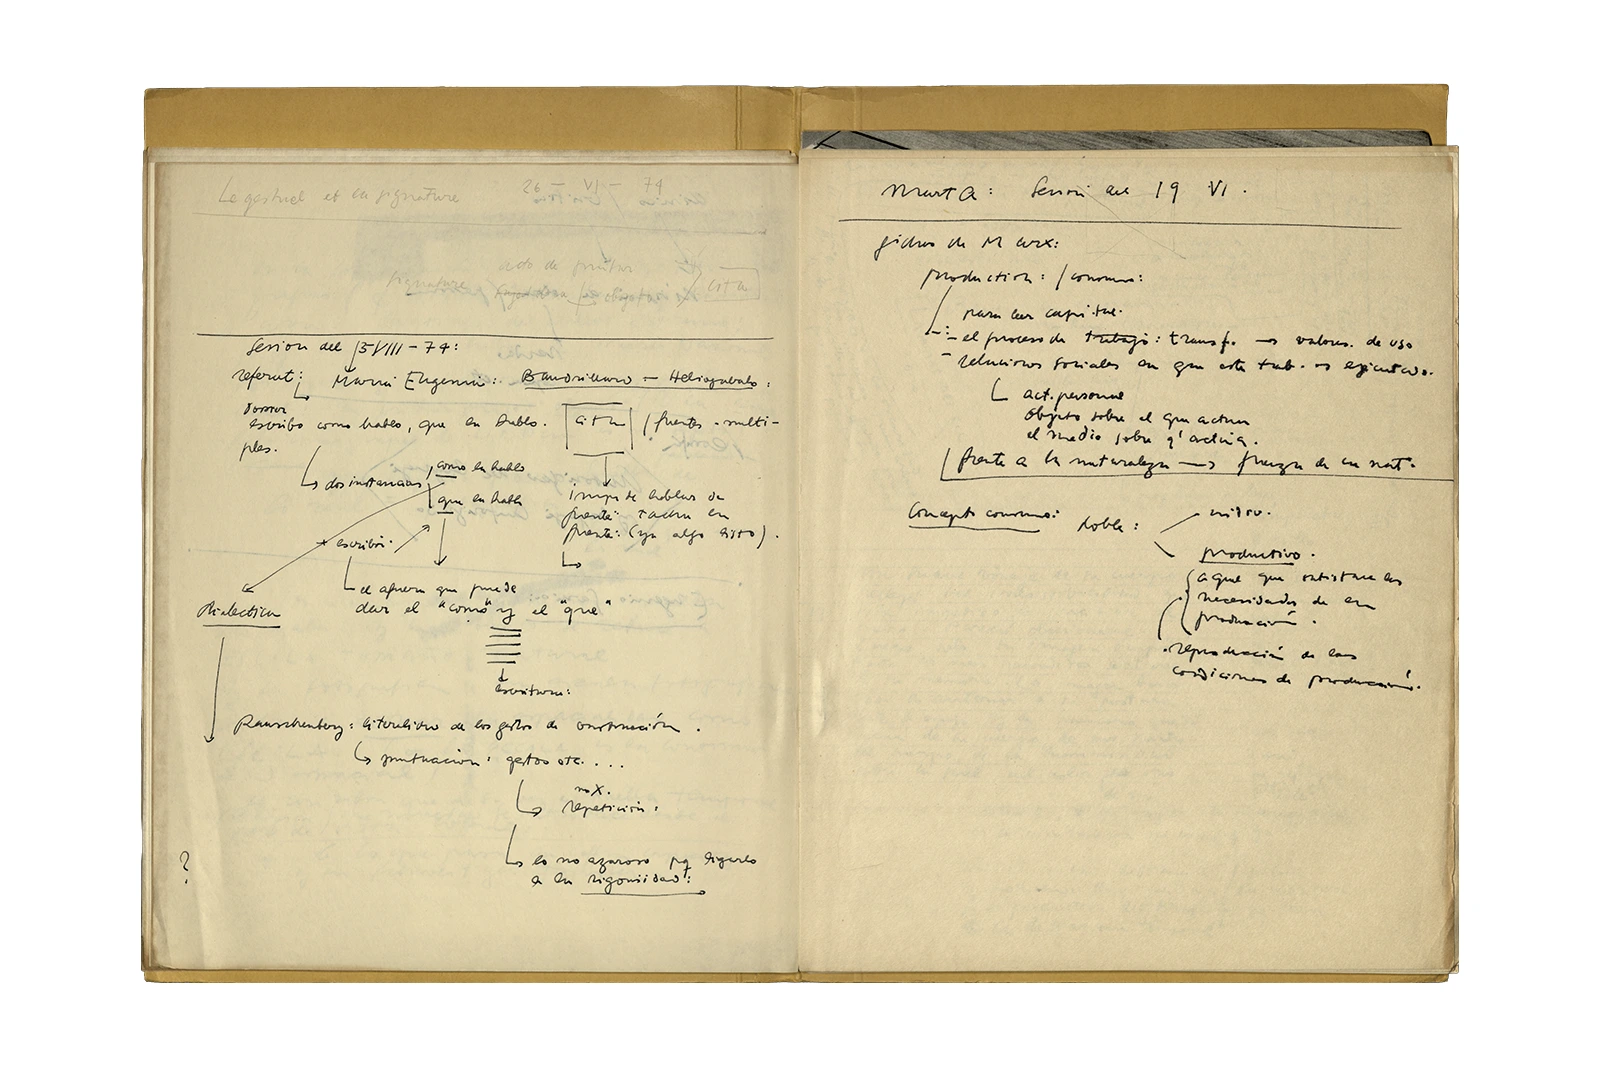 Le gestuel et la signature 26 - VI - 74
acto de pintar
signature cita
Sesion del 15/VIII - 74:
referat: María Eugenia: Baudrillard - Heliogabalo:
escribo como hablo, que en hablo. cita / fuentes - multi-
ples.
dos instancias, como en hablo
que en habla
hablar de
fuente: (ya algo listo).
+ escribir.
el afuera que puede
dar el "como" y el "que"
Dialectica
Escritura:
Rauschenberg: literalidad de los gestos de construcción.
puntuacion: gestos etc....
no X.
repeticion:
?
lo no azaroso pq ligarlo
a la rigoricidad:
Marta: Sesion del 19 VI.
fichas de Marx:
production: / consumo:
para leer capital.
- el proceso de trabajo: transf. → valores de uso
- relaciones sociales en que este trab. → ejecutado.
act. personal
objeto sobre el que actua
el medio sobre q' actúa.
frente a la naturaleza → fuerza de la nat.
Concepto consumo: doble: indiv.
productivo.
aquel que satisface las
necesidades de la
producción.
. reproducción de las
condiciones de producción.